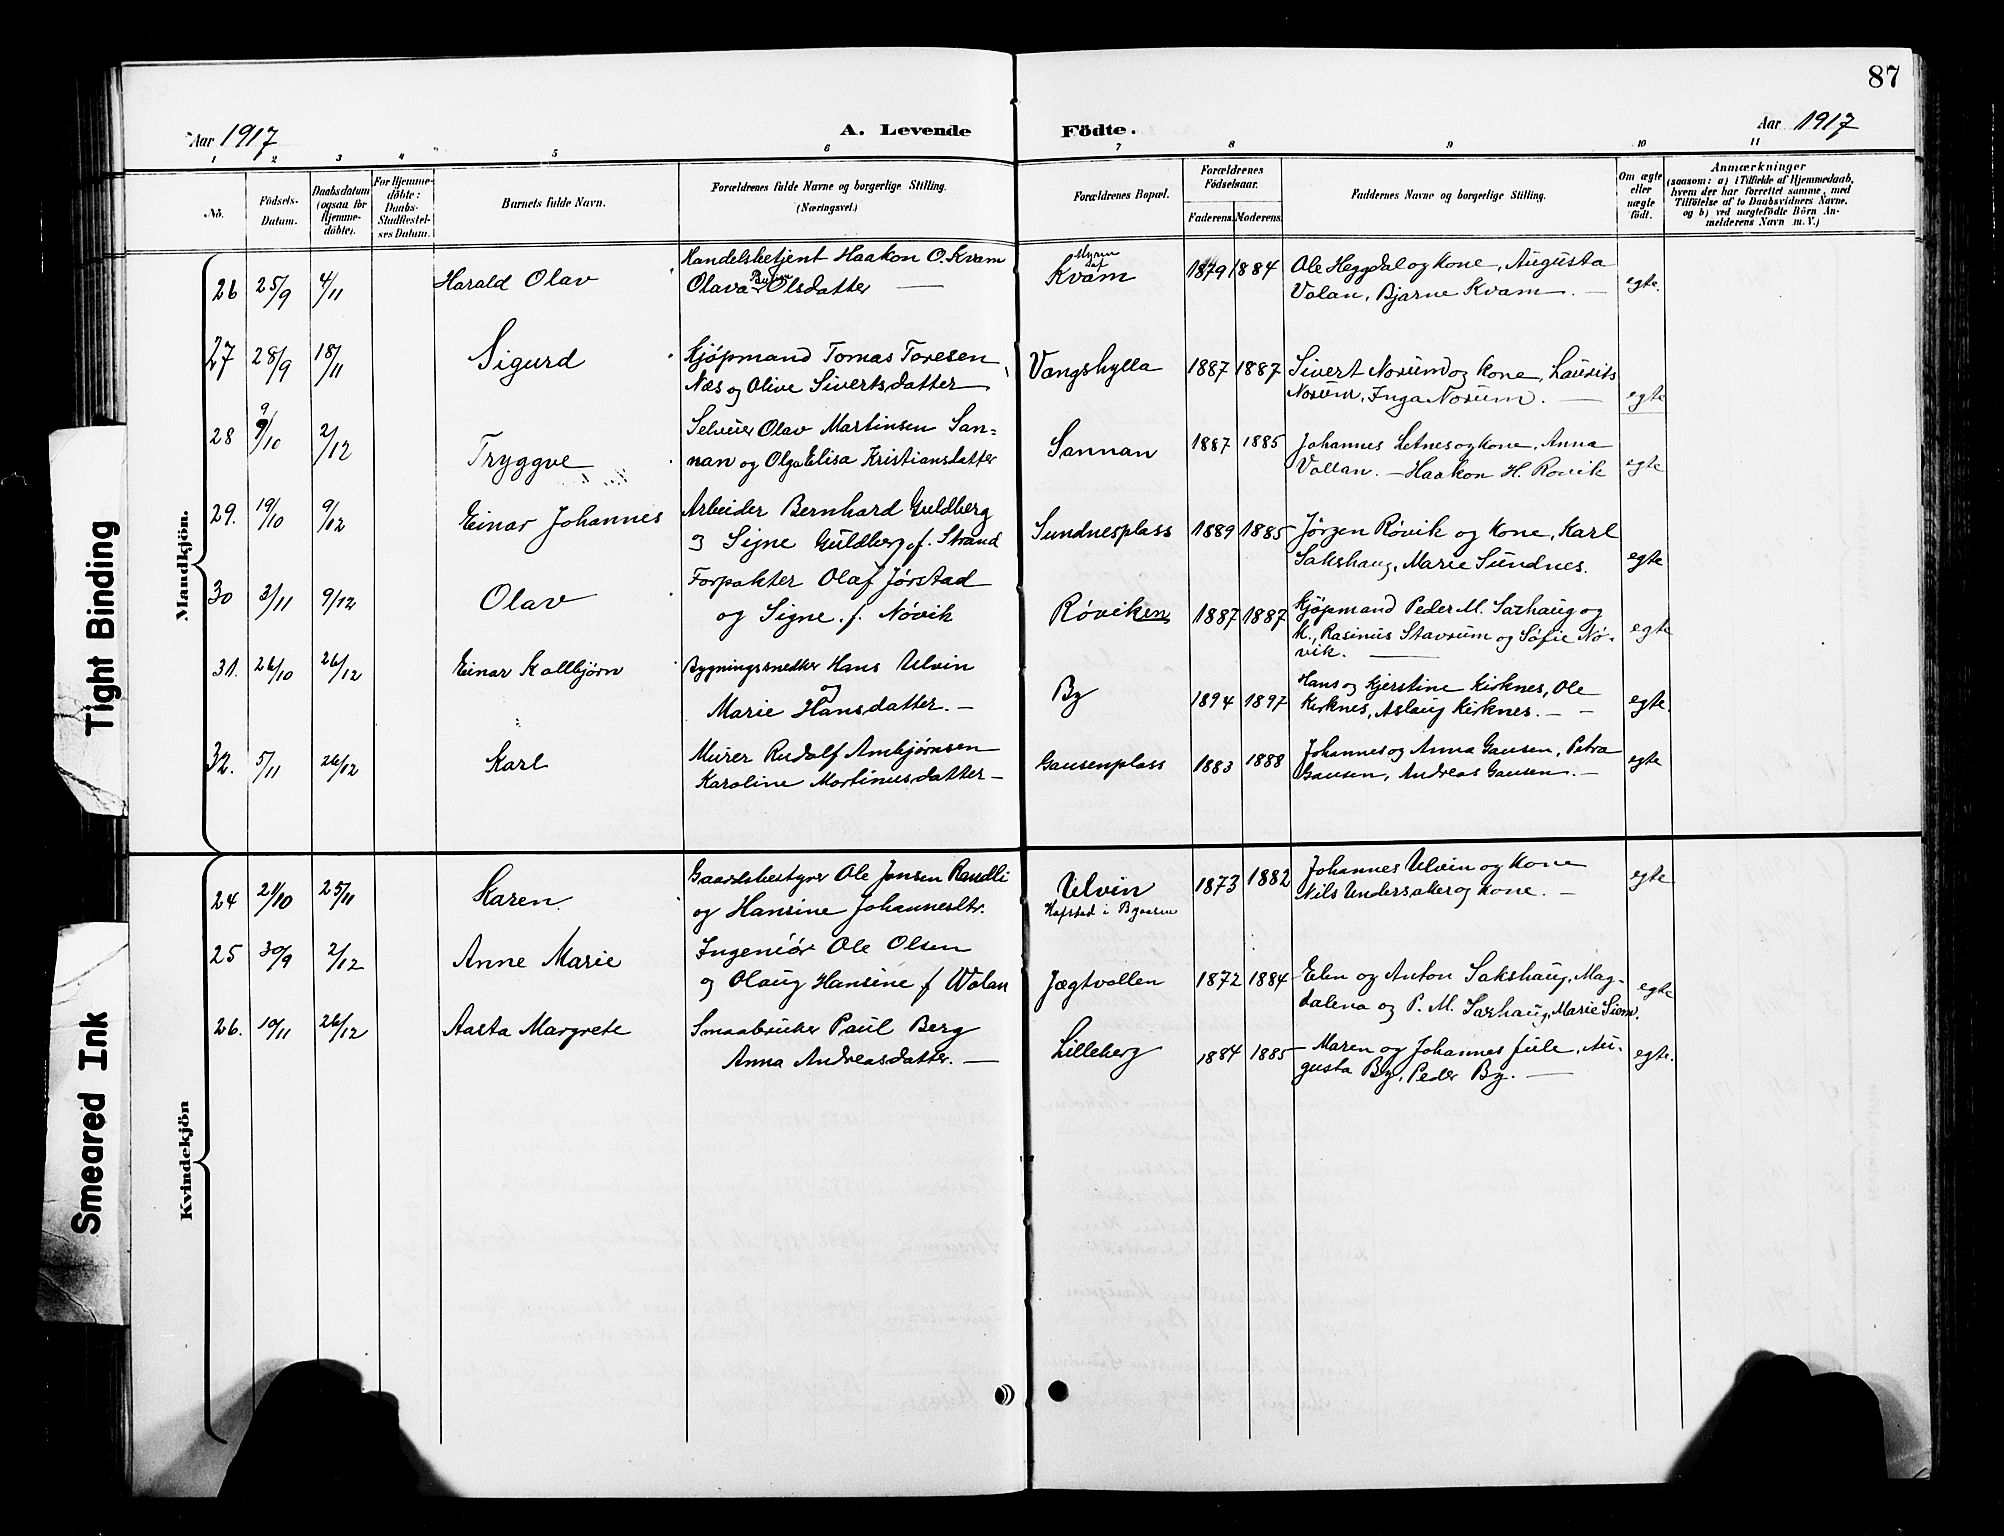 87
Aar 1917
A. Levende Födte.
Aar 1917
1 2 3 4 5 6 7 8 9 10 11
No.
Födsels-
Datum.
Daabsdatum
(ogsaa for
Hjemme-
döbte).
For Hjemme-
döbte:
Daabs-
Stadfæstel-
ses Datum.
Barnets fulde Navn.
Forældrenes fulde Navne og borgerlige Stilling.
(Næringsvei.)
Forældrenes Bopæl.
Forældrenes
Födselsaar.
Faderens. Moderens.
Faddernes Navne og borgerlige Stilling.
Om ægte
eller
uægte
født.
Anmærkninger
(saasom: a) i Tilfælde af Hjemmedaab,
hvem der har forrettet samme, med
Tilföielse af to Daabsvidners Navne,
og b) ved uægtefödte Börn An-
melderens Navn m. V.)
Mandkjön.
26 25/9 4/11
Harald Olav
Handelsbetjent Haakon O. Kvam
Olava Olsdatter —
Kvam
1879 1884
Ole Heggdal og kone, Augusta
Volan, Bjarne Kvam. —
egte.
27 28/9 18/11
Sigurd
Kjöpmand Tomas Toresen
Næs og Olive Sivertsdatter
Vangshylla
1887 1887
Sivert Norum og kone, Laurits
Norum, Inga Norum. —
egte
28 9/10 2/12
Tryggve
Selveier Olav Martinsen San=
nan og Olga Elisa Kristiansdatter
Sannan
1887 1885
Johannes Letnes og kone, Anna
Vollan. — Haakon H. Rovik
egte
29. 19/10 9/12
Einar Johannes
Arbeider Bernhard Guldberg
og Signe Guldberg f. Strand
Sundnesplass
1889 1885
Jørgen Røvik og kone, Karl
Sakshaug, Marie Sundnes.
egte
30 3/11 9/12
Olav
Forpakter Olaf Jørstad
og Signe f. Nøvik
Røviken
1887 1887
Kjöpmand Peder M. Saxhaug og
K., Rasinus Stavrum og Sofie Nø-
vik. —
egte
31. 26/10 26/12
Einar Kolbjørn
Bygningssnedker Hans Ulvin
og
Marie Hansdatter. —
By
1894 1897
Hans og Kjerstine Kirknes, Ole
Kirknes, Aslaug Kirknes. — —
egte.
32. 5/11 26/12
Karl
Murer Rudolf Ambjørnsen
Karoline Mortinusdatter —
Gausenplass
1883 1888
Johannes og Anna Gausen, Petra
Gausen, Andreas Gausen. —
egte
Kvindekjön
24 21/10 25/11
Karen
Gaardsbestyrer Ole Jensen Randli
og Hansine Johannesdtr.
Ulvin
Hafstad i Byaasen
1873 1882
Johannes Ulvin og kone
Nils Undersaker og kone. —
egte
25 30/9 2/12
Anne Marie
Ingeniör Ole Olsen
og Olaug Hansine f Wolan
Jægtvollen
1872 1884
Elen og Anton Sakshaug, Mag-
dalena og P. M. Saxhaug, Marie Siem.
egte
26. 10/11 26/12
Aasta Margrete
Smaabruker Paul Berg
Anna Andreasdatter. —
Lilleberg
1884 1885
— Maren og Johannes Jule, Au-
gusta By, Peder By. —
egte.
Tight Binding
Smeared Ink